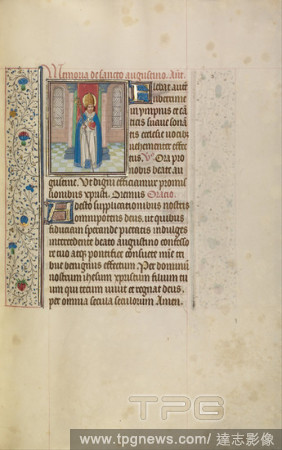 Memoria de sancto augustino. Ant.
in ympnis et ca
ticis suaue sona
tis ecclesie
uehementer effec
tus. Ora pro
nobis beate au
gustine. Ut digni efficiamur promis
sionibus xpristi. Oremus Oracio.
Adesto supplicationibus nostris
omnipotens deus, ut quibus
fiduciam sperande pietatis indulges
intercedente beato augustino confesso
re tuo atque pontifice consuete mise
tribue benignus effectum. Per dominum
nostrum ihesum xpristum filium tu
um qui tecum uiuit et regnat deus,
per omnia secula seculorum Amen.
TPG
www.tpgnews.com/ 達志影像